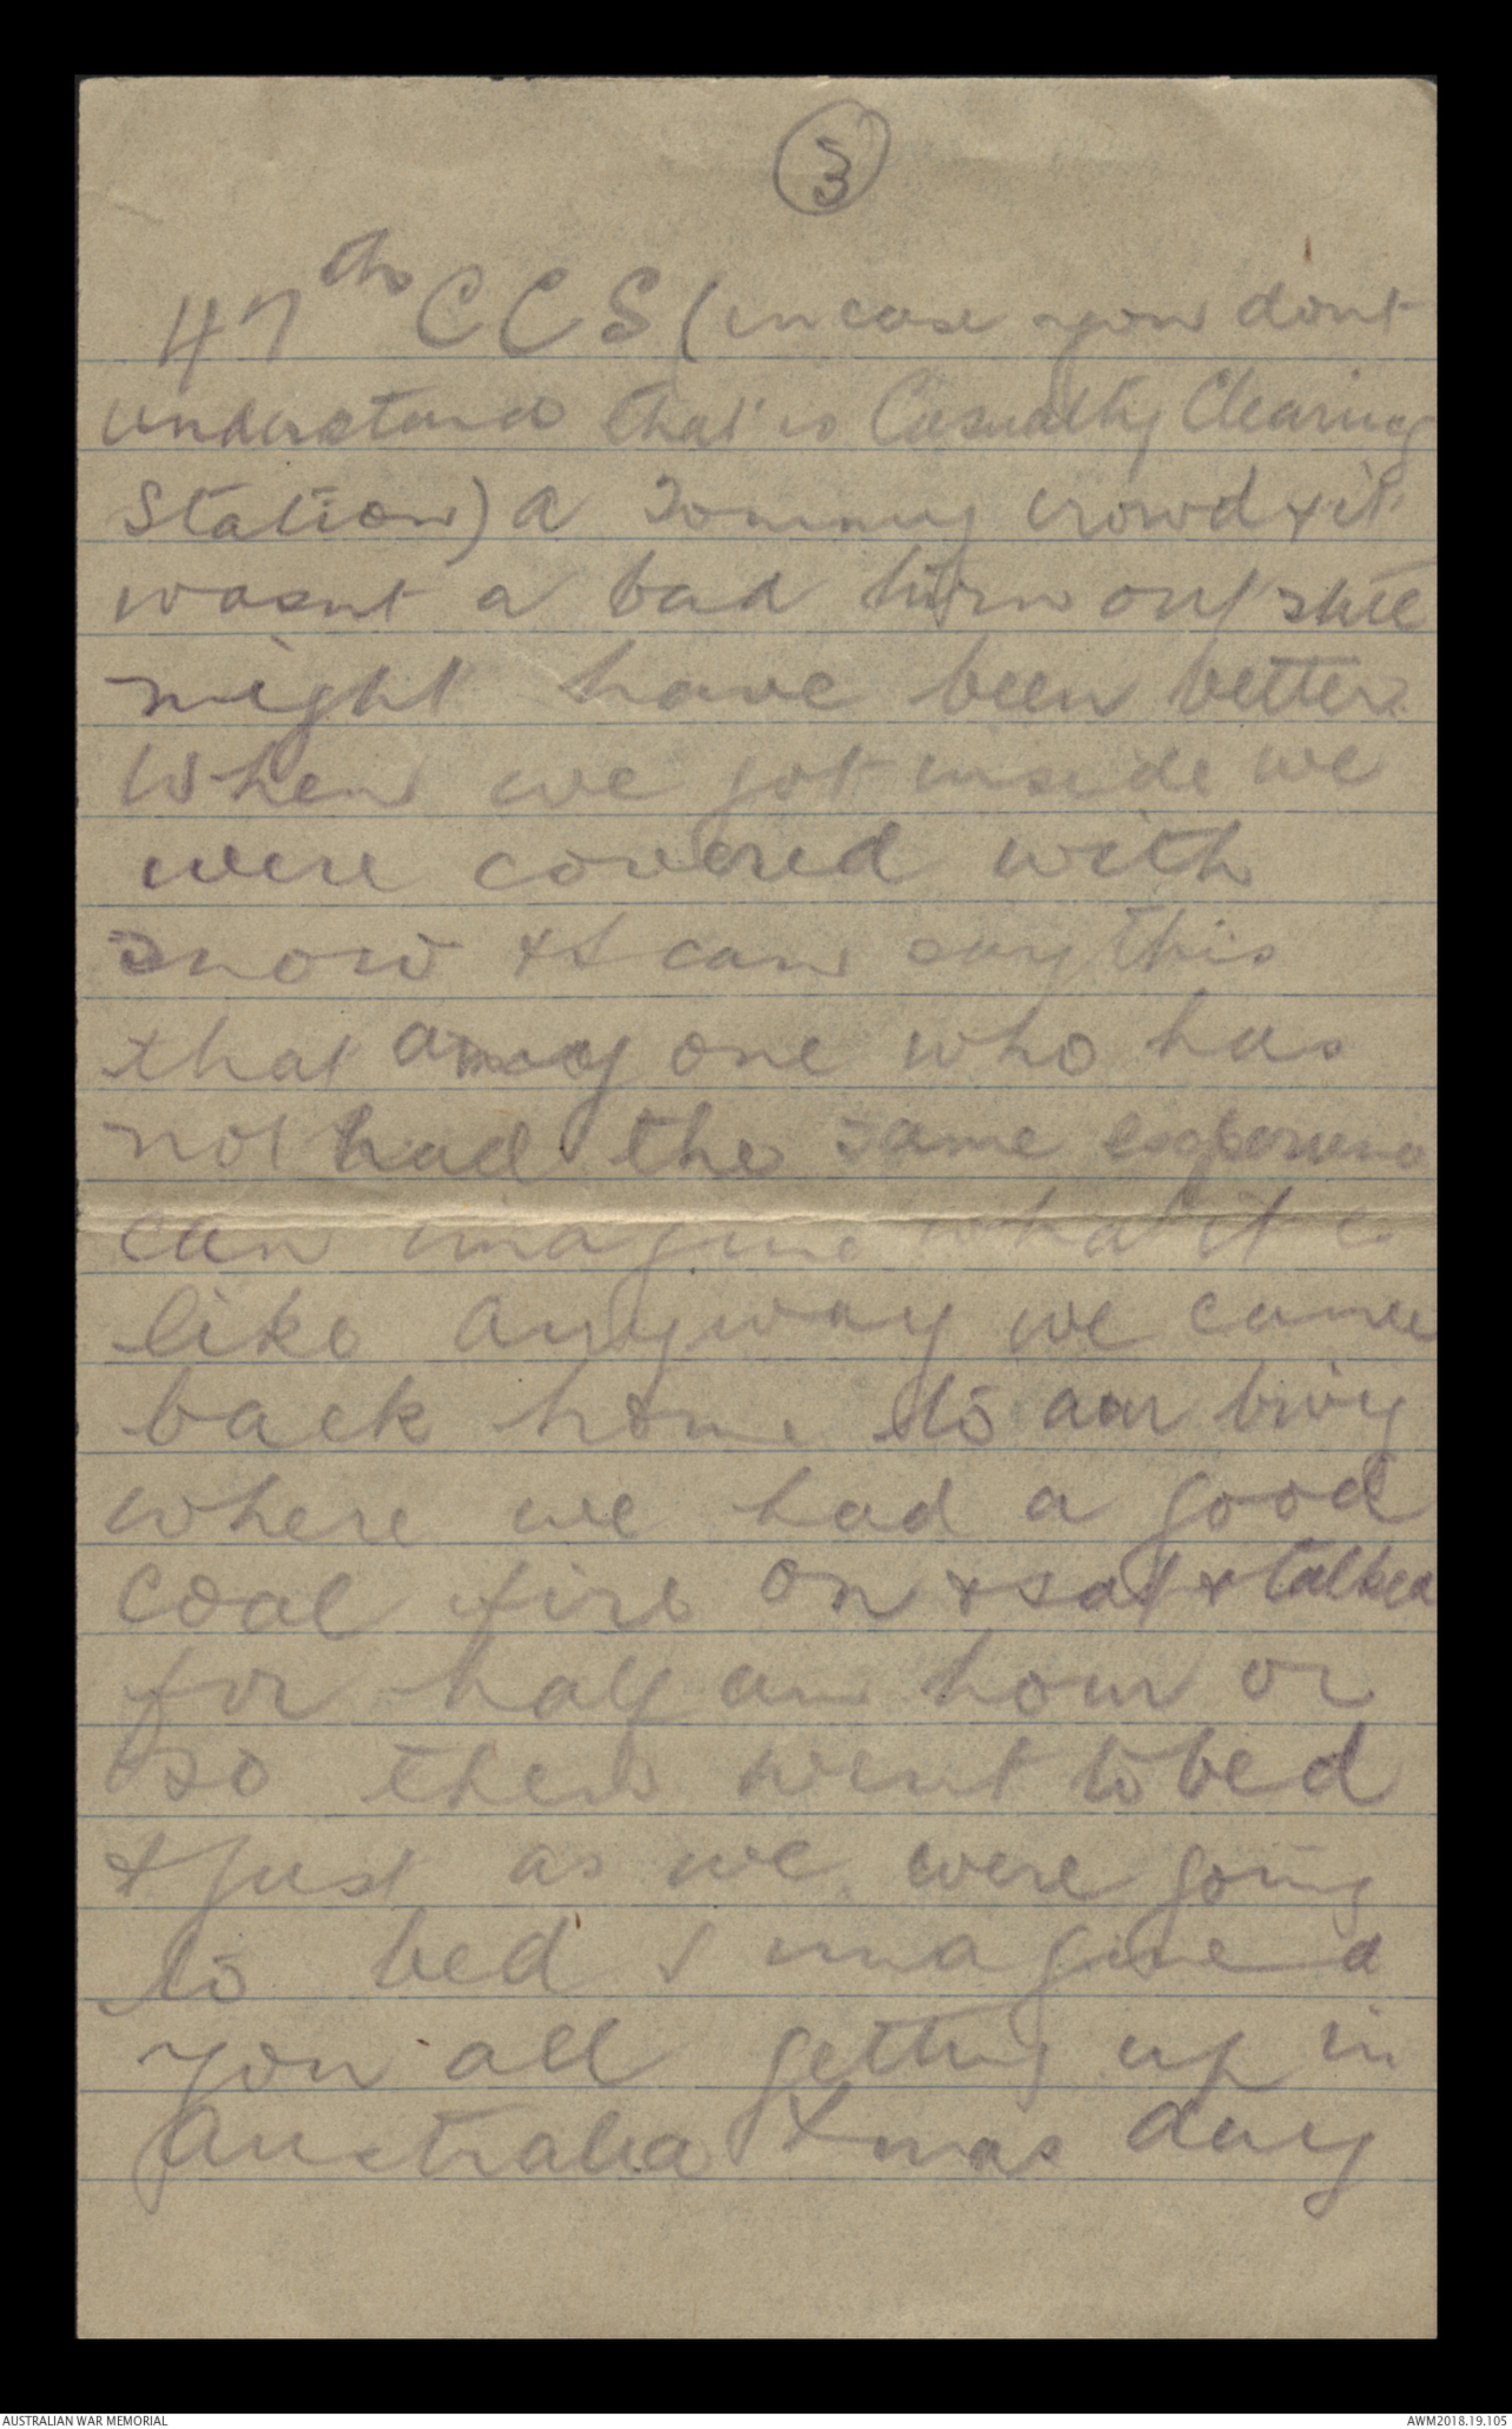 3
47th CCS (in case you dont
understand that is Casualty Clearing
Station) a Tommy crowd & it
wasnt a bad turn out still
might have been better.
When we got inside we
were covered with
snow & I can say this
that any one who has
not had the same experience
can imagine what it is
like anyway we came
back home to our bivy
where we had a good
coal fire on & sat & talked
for half an hour or
so then went to bed
& just as we were going
to bed I imagined
you all getting up in
Australia Xmas day
AUSTRALIAN WAR MEMORIAL
AWM2018.19.105